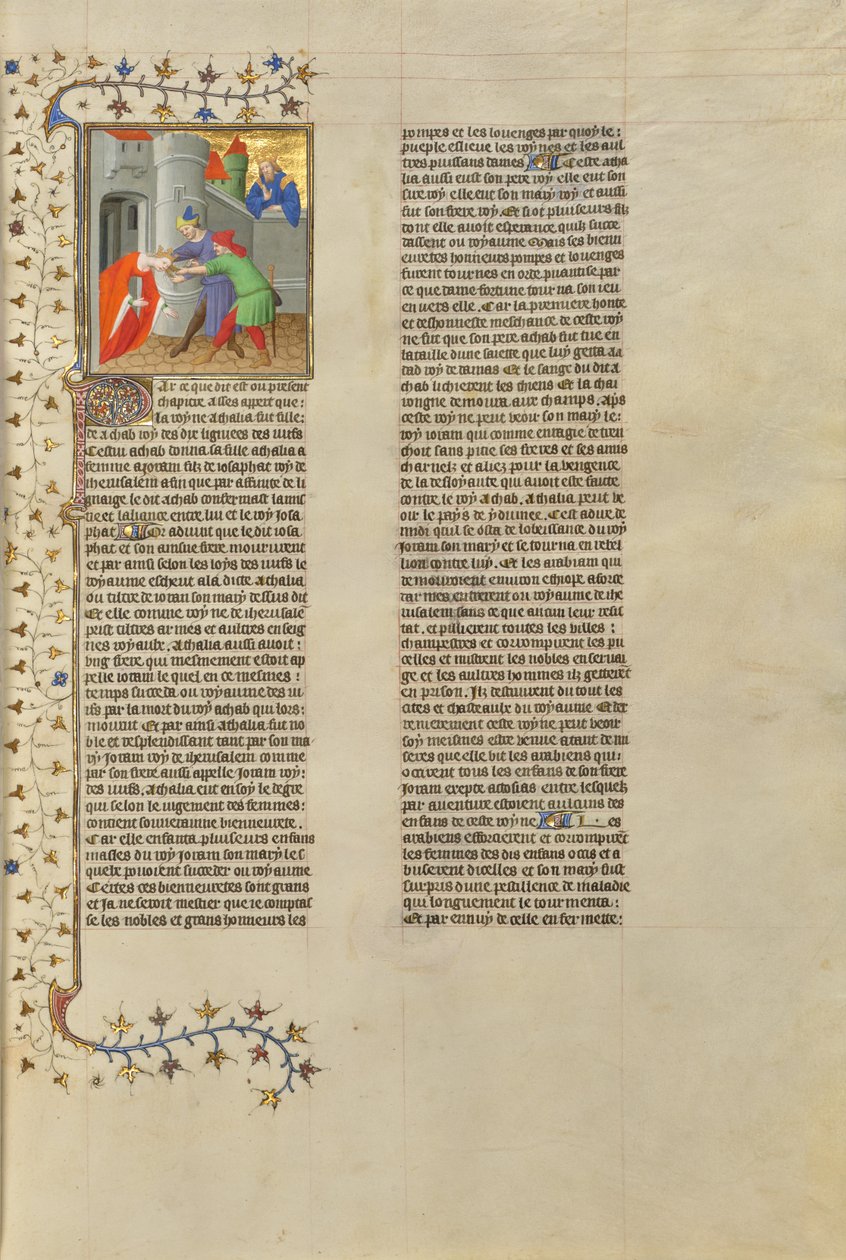 Par ce que dit est ou present
chapitre asses appert que:
la royne athalia fut fille:
de achab roy des dix lignees des iuifs
Cestui achab donna sa fille athalia a
femme a ioram filz de iosaphat roy de
iherusalem afin que par affinite de li
gnaige le dit achab confermast lamis
tie et laliance entre lui et le roy iosa
phat Or aduint que le dit iosa
phat et son ainsne frere moururent
et par ainsi selon les loys des iuifs le
royaume escheut a la dicte athalia
ou tiltre de ioram son mary dessus dit
Et elle comme royne de iherusalē
prist tiltres armes et aultres enseig
nes royaulx. Athalia aussi auoit:
vng frere qui mesmement estoit ap
pelle ioram le quel en ce mesmes:
temps succeda ou royaume des iu
ifs par la mort du roy achab qui lors:
mourut Et par ainsi athalia fut no
ble et resplendissant tant par son ma
ry ioram roy de iherusalem comme
par son frere aussi appelle ioram roy:
des iuifs. Athalia eut en soy le degre
qui selon le iugement des femmes:
contient souueraine bieneurete.
Car elle enfanta pluiseurs enfans
masles du roy ioram son mary les
quelx pouoient succeder ou royaume
Certes ces bieneuretes sont grans
et ia ne seroit mestier que ie comptas
se les nobles et grans honneurs les
pompes et les louenges par quoy le:
pueple eslieue les roynes et les aul
tres puissans dames Ceste atha
lia aussi eust son pere roy elle eut son
sire roy elle eut son mary roy et aussi
fut son frere roy. Et si ot pluiseurs filz
dont elle auoit esperance quilz succe
dassent ou royaume Mais ses bieneu
euretes honneurs pompes et louenges
furent tournes en orde puantise par
ce que dame fortune tourna son ieu
en uers elle. Car la premiere honte
et deshonneste meschance de ceste roy
ne fut que son pere achab fut tue en
bataille dune saiette que luy getta aa
dad roy de damas Et le sange du dit a
chab lichierent les chiens Et la cha
roingne demoura aux champs. Apͥs
ceste royne peut veoir son mary le:
roy ioram qui comme enragie detren
choit sans pitie ses freres et ses amis
charnelz et aliez pour la vengence
de la desloyaute qui auoit este faite
contre le roy achab. Athalia peut ve
oir le pays de ydumee. Cest adire de
midi quil se osta de lobeissance du roy
Ioram son mary et se tourna en rebel
lion contre luy. Et les arabians qui
demouroient enuiron ethiope a force
darmes entrerent ou royaume de ihe
rusalem sans ce que aucun leur resis
tat. et pillierent toutes les villes:
champestres et corrompirent les pu
celles et mistrent les nobles en seruai
ge et les aultres hommes ilz getterēt
en prison. Ilz destruirent du tout les
cites et chasteaulx du royaume Et der
renierement ceste royne peut veoir
soy meismes estre venue a tant de mi
seres que elle vit les arabiens qui:
occirent tous les enfans de son frere
Ioram exepte actosias entre lesquelz
par auenture estoient aulcuns des
enfans de ceste royne Les
arabiens efforcierent et corrompirēt
les femmes des dis enfans occis et a
buserent dicelles et son mary fust
surpris dune pestillence de maladie
qui longuement le tourmenta:
Et par ennuy de celle enfermette: